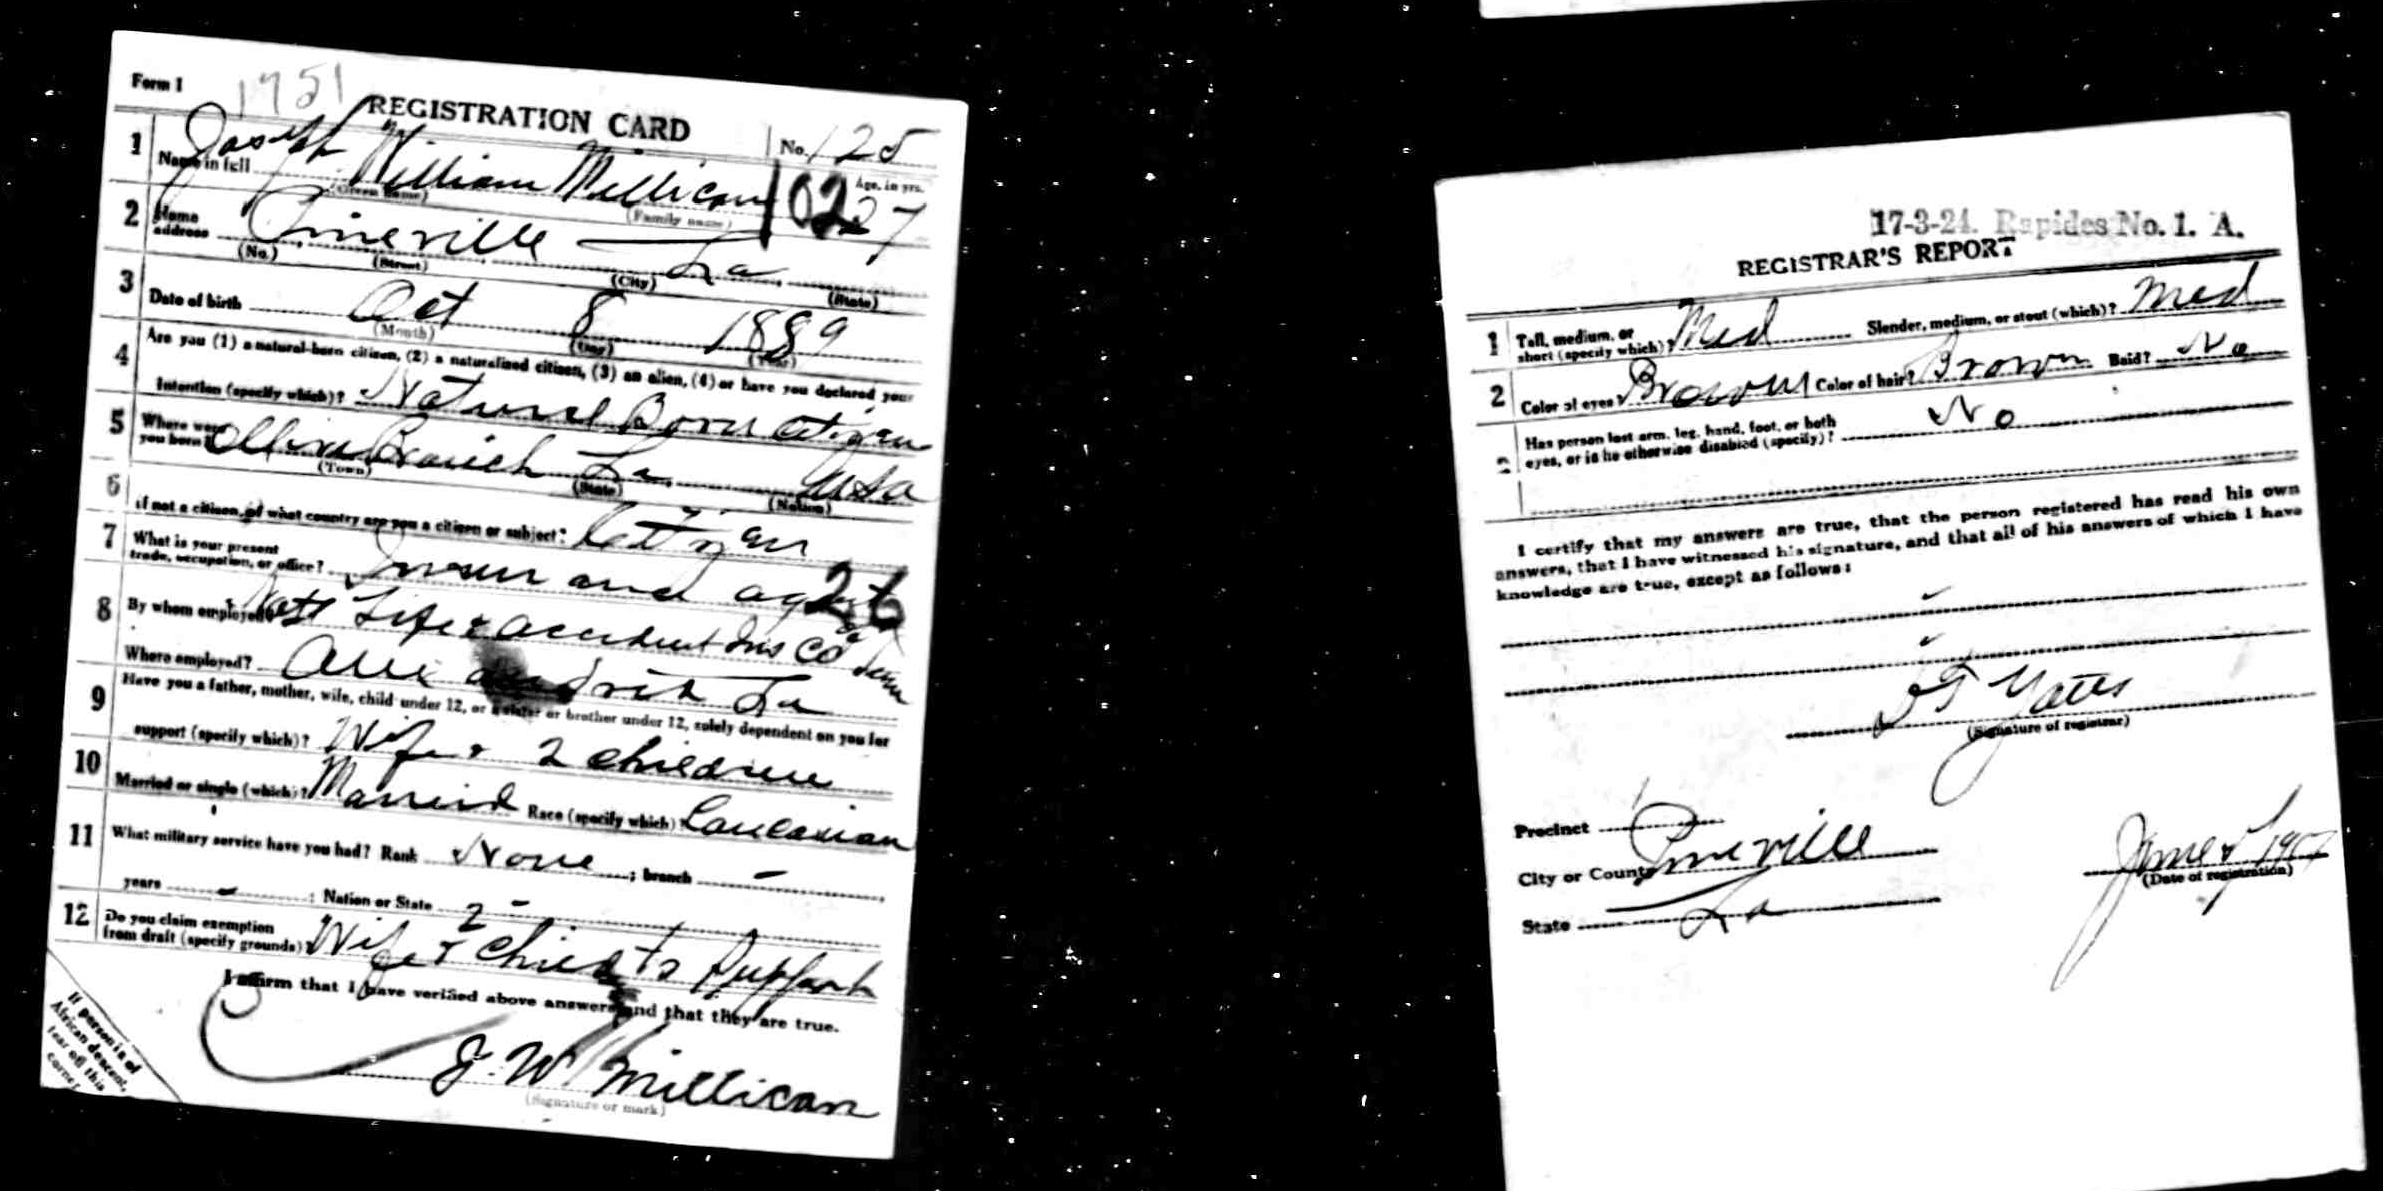 Form 1
1751
REGISTRATION CARD
No. 125
1 Name in full Joseph William Millican
(Given name) (Family name)
Age, in yrs. 27
102
2 Home address Pineville La
(No.) (Street) (City) (State)
3 Date of birth Oct 8 1889
(Month) (Day) (Year)
4 Are you (1) a natural-born citizen, (2) a naturalized citizen, (3) an alien, (4) or have you declared your
intention (specify which)? Natural Born citizen
5 Where were you born? Ollive Branch La. USA
(Town) (State) (Nation)
6 If not a citizen, of what country are you a citizen or subject? Citizen
7 What is your present trade, occupation, or office?
26
8 By whom employed? Natl Life & accident Ins Co
Where employed? La
9 Have you a father, mother, wife, child under 12, or a sister or brother under 12, solely dependent on you for
support (specify which)? Wife & 2 children
10 Married or single (which)? Married Race (specify which)? Caucasian
11 What military service have you had? Rank None ; branch –
years – ; Nation or State –
12 Do you claim exemption from draft (specify grounds)? Wife & 2 child to support
I affirm that I have verified above answers and that they are true.
J. W. Millican
(Signature or mark)
If person is of
African descent,
tear off this
corner
17-3-24. Rapides No. 1. A.
REGISTRAR'S REPORT
1 Tall, medium, or short (specify which)? Med Slender, medium, or stout (which)? Med
2 Color of eyes? Brown Color of hair? Brown Bald? No
3 Has person lost arm, leg, hand, foot, or both
eyes, or is he otherwise disabled (specify)? No
I certify that my answers are true, that the person registered has read his own
answers, that I have witnessed his signature, and that all of his answers of which I have
knowledge are true, except as follows:
Yates
(Signature of registrar)
Precinct
City or County Pineville
State La
June 5 1917
(Date of registration)